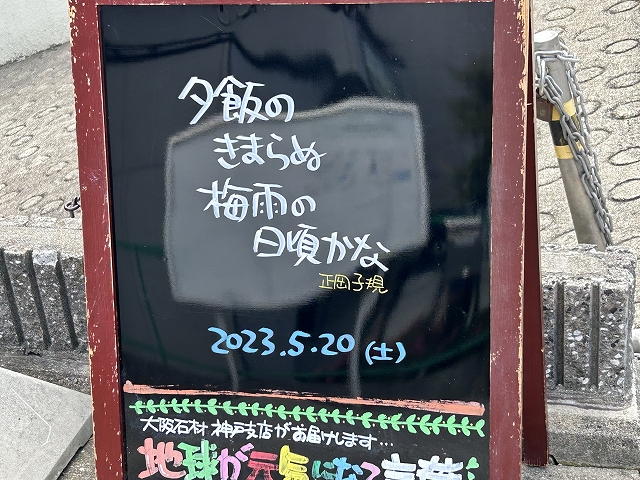 夕飯の
きまらぬ
梅雨の
日頃かな
正岡子規
2023.5.20(土)
大阪石材神戸支店がお届けします…
地球が元気になる言葉